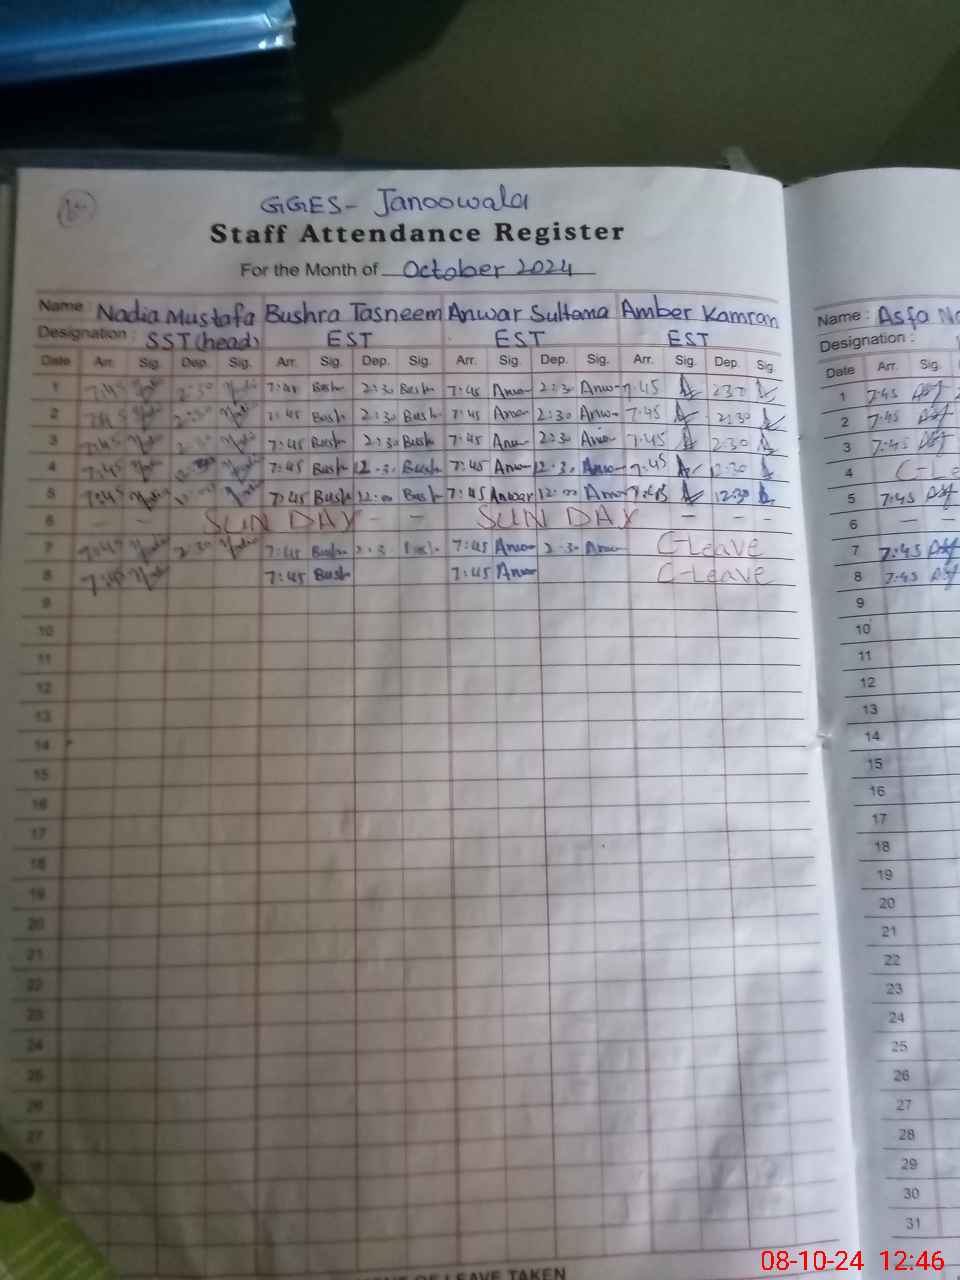 GGES- Janoowala
Staff Attendance Register
For the Month of October 2024
Name : Nadia Mustafa Bushra Tasneem Anwar Sultana Amber Kamran
Designation : SST (head) EST EST EST
Date Arr. Sig. Dep. Sig. Arr. Sig. Dep. Sig. Arr. Sig. Dep. Sig. Arr. Sig. Dep. Sig.
1 7:45 2:30 7:45 Bush 2:3 Bush 7:45 Anw 2:3 Anw 7:45 2:30
2 7:45 2:30 7:45 Bush 2:30 Bush 7:45 Anw 2:30 Anw 7:45 2:30
3 7:45 2:30 7:45 Bush 2:30 Bush 7:45 Anw 2:30 Anw 7:45 2:30
4 7:45 7:45 Bush 12:3 Bush 7:45 Anw 12:3 Anw 7:45 12:30
5 7:45 7:45 Bush 12:00 Bush 7:45 Anwar 12:00 Anw 12:30
6 - - SUN DAY - - SUN DAY - - -
7 7:45 2:30 7:45 Bush 2:3 Bush 7:45 Anw 2:30 Anw C-Leave
8 7:45 7:45 Bush 7:45 Anw C-Leave
9
10
11
12
13
14
15
16
17
18
19
20
21
22
23
24
25
26
27
OF LEAVE TAKEN
Name : Asfa
Designation :
Date Arr. Sig.
1 7:45 Asf
2 7:45 Asf
3 7:45 Asf
4 C-Le
5 7:45 Asf
6 - -
7 7:45 Asf
8 7:45 Asf
9
10
11
12
13
14
15
16
17
18
19
20
21
22
23
24
25
26
27
28
29
30
31
08-10-24 12:46